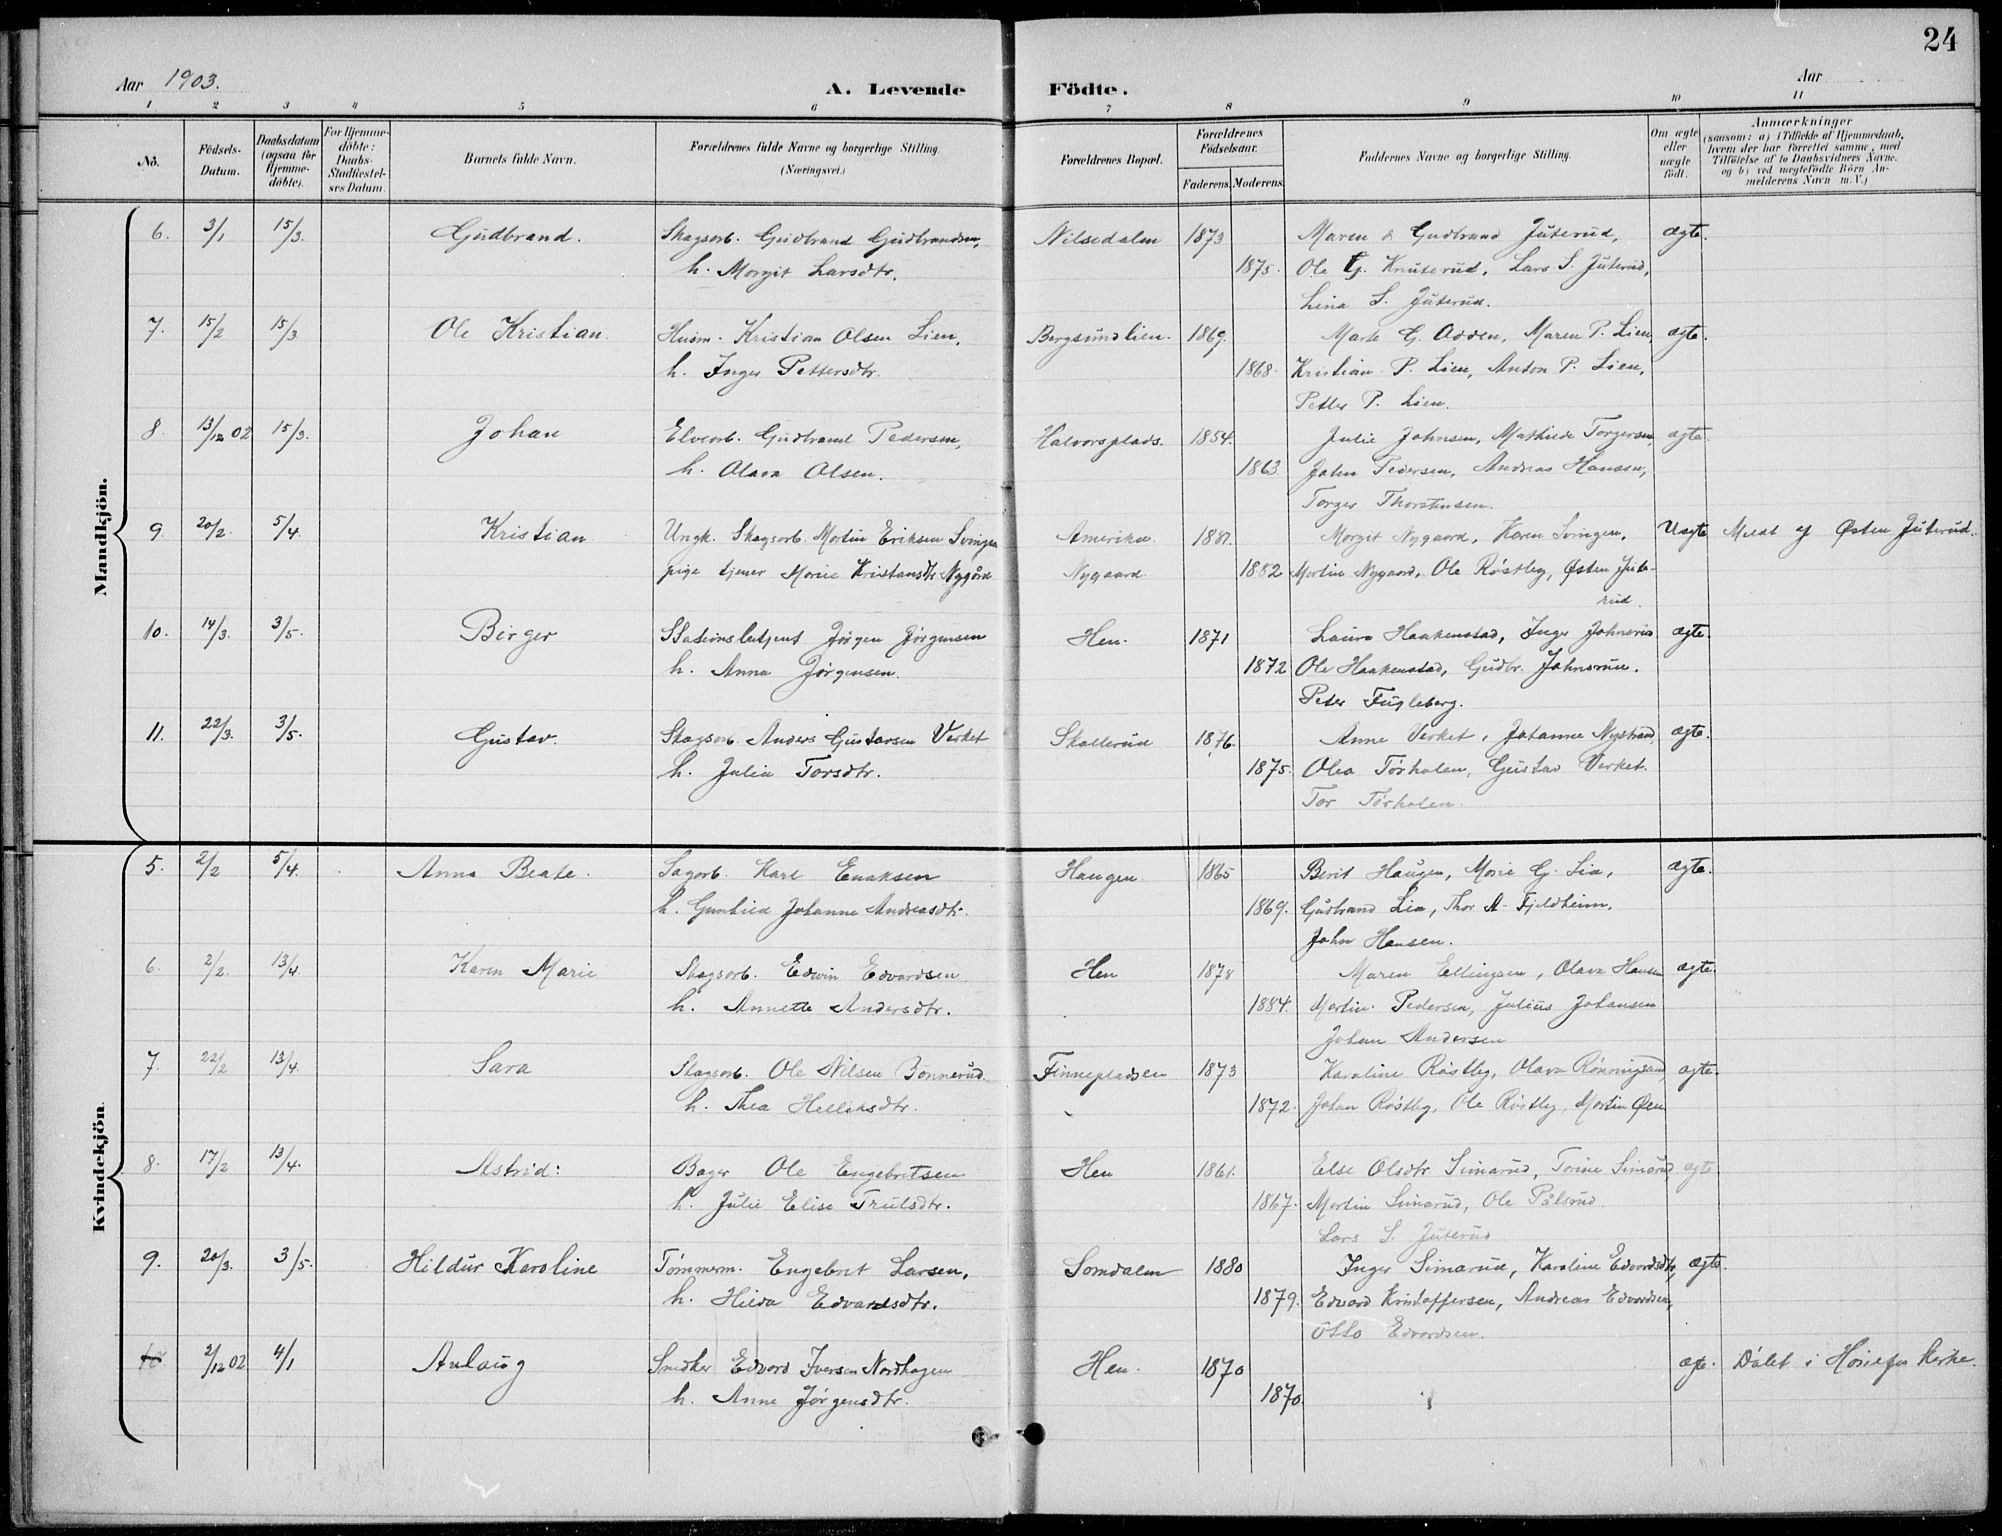 24
Aar 1903.
A. Levende Födte.
Aar
1 2 3 4 5 6 7 8 9 10 11
No. Födsels-Datum. Daabsdatum (ogsaa for Hjemmedöbte). For Hjemmedöbte: Daabs-Stadfæstelses Datum. Barnets fulde Navn. Forældrenes fulde Navne og borgerlige Stilling. (Næringsvei.) Forældrenes Bopæl. Forældrenes Födselsaar. Faderens. Moderens. Faddernes Navne og borgerlige Stilling. Om ægte eller uægte födt. Anmærkninger (saasom: a) i Tilfælde af Hjemmedaab, hvem der har forrettet samme, med Tilföielse af to Daabsvidners Navne. og b) ved uægtefödte Börn Anmelderens Navn m. V.)
Mandkjön.
6. 3/1 15/3. Gudbrand. Skogsarb. Gudbrand Gudbrandsen, Nilsedalen 1873 Maren & Gudbrand Juterud, ægte.
h. Margit Larsdtr. 1875. Ole G. Knuterud, Lars S. Juterud,
Lina S. Juterud.
7. 15/2 15/3 Ole Kristian. Husm. Kristian Olsen Lien, Bergsundlien. 1869. Marte G. Odden, Maren P. Lien, ægte.
h. Inger Pettersdtr. 1868. Kristian P. Lien, Anton P. Lien,
Petter P. Lien.
8. 13/12 02 15/3. Johan Elvearb. Gudbrand Pedersen, Halvorsplads. 1854. Julie Johnsen, Mathilde Torgersen, ægte.
h. Olava Olsen. 1863. John Pedersen, Andreas Hansen,
Torger Thorstensen.
9. 20/2. 5/4. Kristian Ungk. Skogsarb. Martin Eriksen Svingen Amerika. 1881. Margit Nygaard, Karen Svingen, Uægte Meldt af Østen Juterud.
pige tjener Marie Kristansdtr Nygård Nygaard 1882 Martin Nygaard, Ole Røstby, Østen Jute-
rud.
10. 14/3. 3/5. Birger Stationsbetjent Jørgen Jørgensen Hen. 1871 Laura Haakenstad, Inger Johnsrud ægte.
h. Anna Jørgensen. 1872 Ole Haakenstad, Gudbr. Johnsrud.
Peter Fugleberg.
11. 22/3. 3/5. Gustav. Skogsarb. Anders Gustavsen Verket Skollerud 1876. Anne Verket, Johanne Nystrand, ægte.
h. Julia Torsdtr. 1875. Olea Tørholen, Gustav Verket.
Tor Tørholen.
Kvindekjön.
5. 2/2 5/4. Anna Beate. Sagarb. Karl Enaksen Haugen 1865 Berit Haugen, Marie G. Lia, ægte.
h. Gunhild Johanne Andreasdtr. 1869. Gudbrand Lia, Thor A. Fjeldheim,
John Hansen.
6. 2/2. 13/4. Karen Marie Skogsarb. Edvin Edvardsen Hen 1878 Maren Ellingsen, Olava Hansen ægte.
h. Annette Andersdtr. 1884. Martin Pedersen, Julius Johansen
Johan Andersen
7. 22/2 13/4. Sara Skogsarb. Ole Nilsen Bønnerud. Finnepladsen 1873 Karoline Røstby, Olava Rønningsand, ægte.
h. Thea Helliksdtr. 1872. Johan Røstby, Ole Røstby, Martin Øen
8. 17/2 13/4. Astrid: Bager Ole Engebretsen Hen 1861. Else Olsdtr Simarud, Torine Simarud ægte
h. Julie Elise Trulsdtr. 1867. Martin Simarud, Ole Pålsrud.
Lars S. Juterud
9. 20/3. 3/5. Hildur Karoline Tømmerm. Engebret Larsen, Somdalen 1880 Inger Simarud, Karoline Edvardsdtr, ægte.
h. Hilda Edvardsdtr. 1879. Edvard Kristoffersen, Andreas Edvardsen,
Otto Edvardsen.
10 2/12 02 4/1 Aslaug Snedker Edvard Iversen Nordhagen Hen. 1870 ægte. Døbt i Hønefos Kirke.
h. Anne Jørgensdtr. 1870.